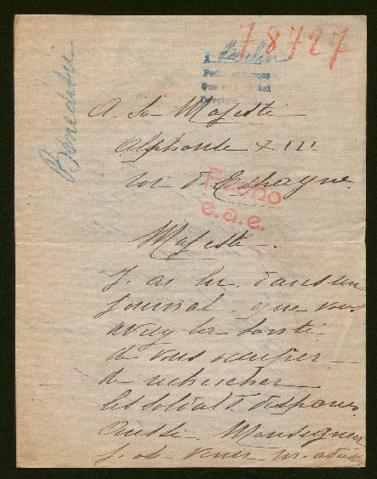 78727
Benedetti
A Berlin
A Sa Majesté
Alphonse XIII
roi d'Espagne
e.a.e.
Majesté.
J ai lu dans un
journal que vous
avez la bonté
de vous occuper
de rechercher
les soldats disparus
Aussi Monseigneur
j. ose venir